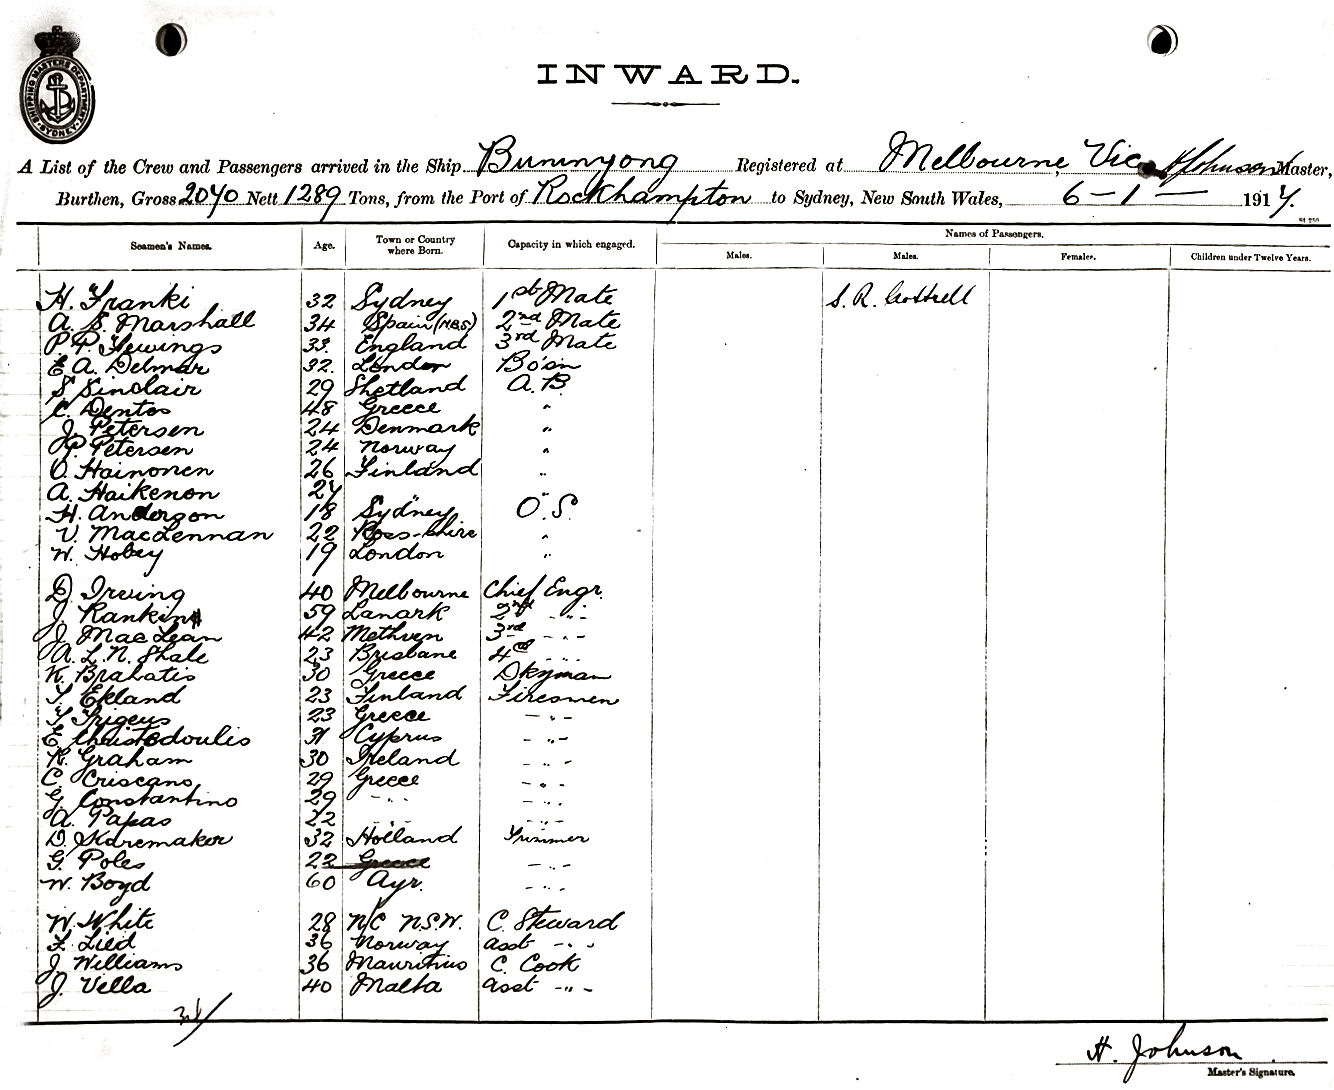 SHIPPING MASTERS DEPARTMENT SYDNEY
INWARD.
A List of the Crew and Passengers arrived in the Ship Buninyong Registered at Melbourne, Vic. H Johnson Master,
Burthen, Gross 2070 Nett 1289 Tons, from the Port of Rockhampton to Sydney, New South Wales, 6 - 1 - 1914.
Seamen's Names. Age. Town or Country where Born. Capacity in which engaged. Names of Passengers.
Males. Males. Females. Children under Twelve Years.
H. Franki 32 Sydney 1st Mate S. R. Cottrell
A. S. Marshall 34 Spain (N.B.S) 2nd Mate
P. P. Fewings 33. England 3rd Mate
E A. Delmar 32. London Bo'sn
S Sinclair 29 Shetland A.B.
C. Dentos 48 Greece "
J. Petersen 24 Denmark "
P. Petersen 24 Norway "
O. Hainonen 26 Finland "
A. Haikenon 27 " "
H. Anderson 18 Sydney O.S.
V. MacLennan 22 Ross-shire "
W. Hobey 19 London "
D. Irving 40 Melbourne Chief Engr.
J. Rankin 59 Lanark 2nd - " -
J. MacLean 42 Methven 3rd - " -
A. L. N. Shale 23 Brisbane 4th - " -
K. Brahatis 30 Greece Dkyman
T. Ekland 23 Finland Firesmen
T. Trigeus 23 Greece - " -
E Christodoulis 31 Cyprus - " -
R. Graham 30 Ireland - " -
C. Criscano 29 Greece - " -
G. Constantino 29 - " - - " -
A. Papas 22 - " - - " -
D. Skaremaker 32 Holland Trimmer
G. Poles 22 Greece - " -
W. Boyd 60 Ayr. - " -
W. White 28 N/C N.S.W. C. Steward
F. Lied 36 Norway asst - " -
J. Williams 36 Mauritius C. Cook
J. Vella 40 Malta asst - " -
H. Johnson
Master's Signature.